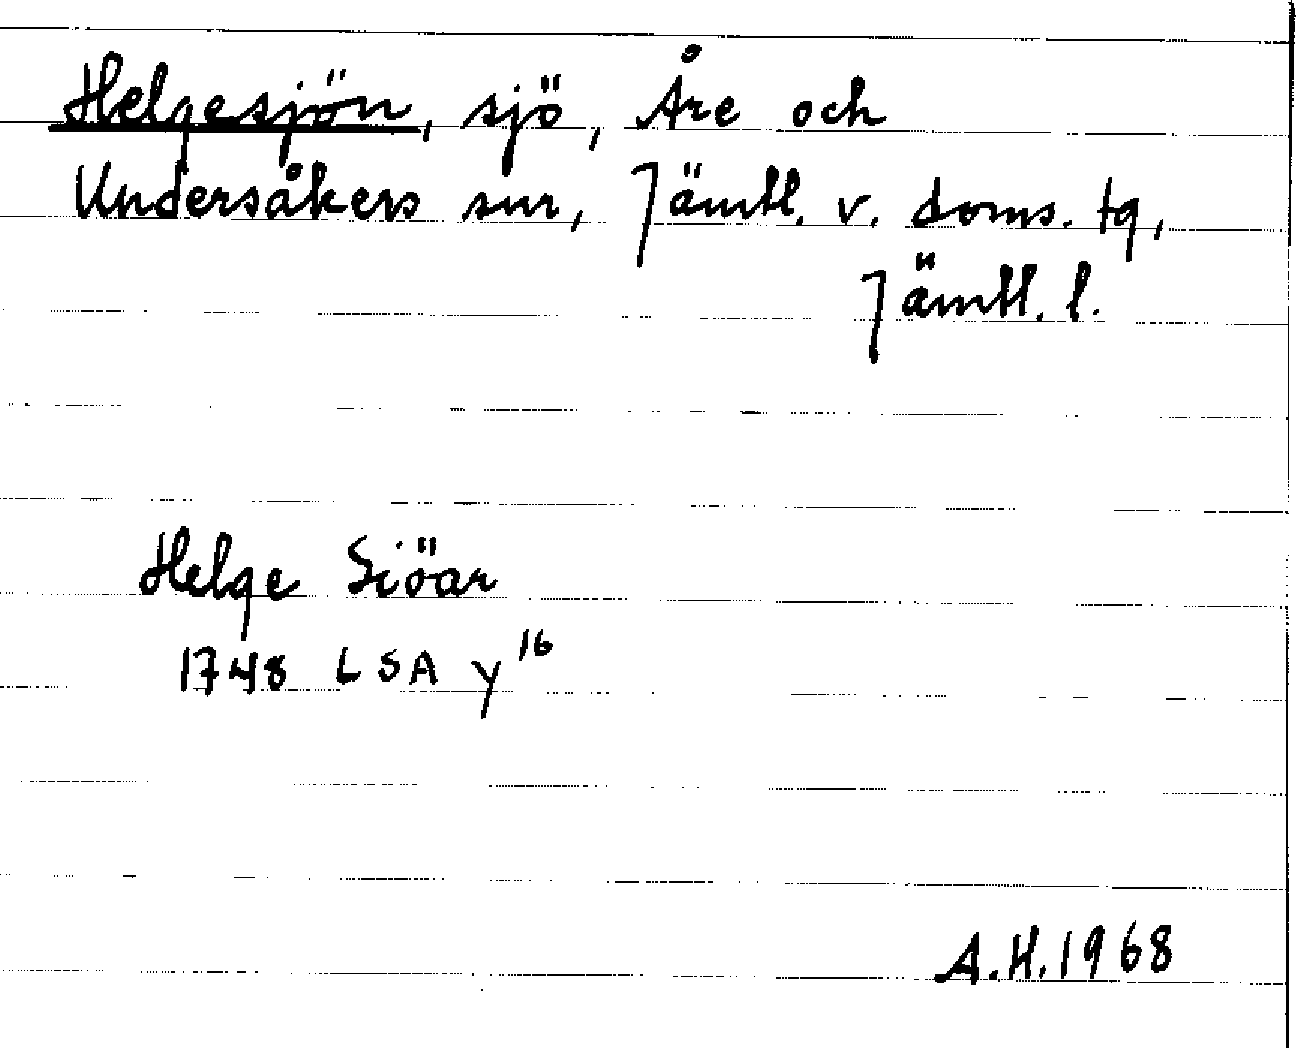 Helgesjön, sjö, Åre och
Undersåkers snr, Jämtl. v. doms. tg,
Jämtl. l.
Helge Siöar
1748 LSA Y16
A.H. 1968